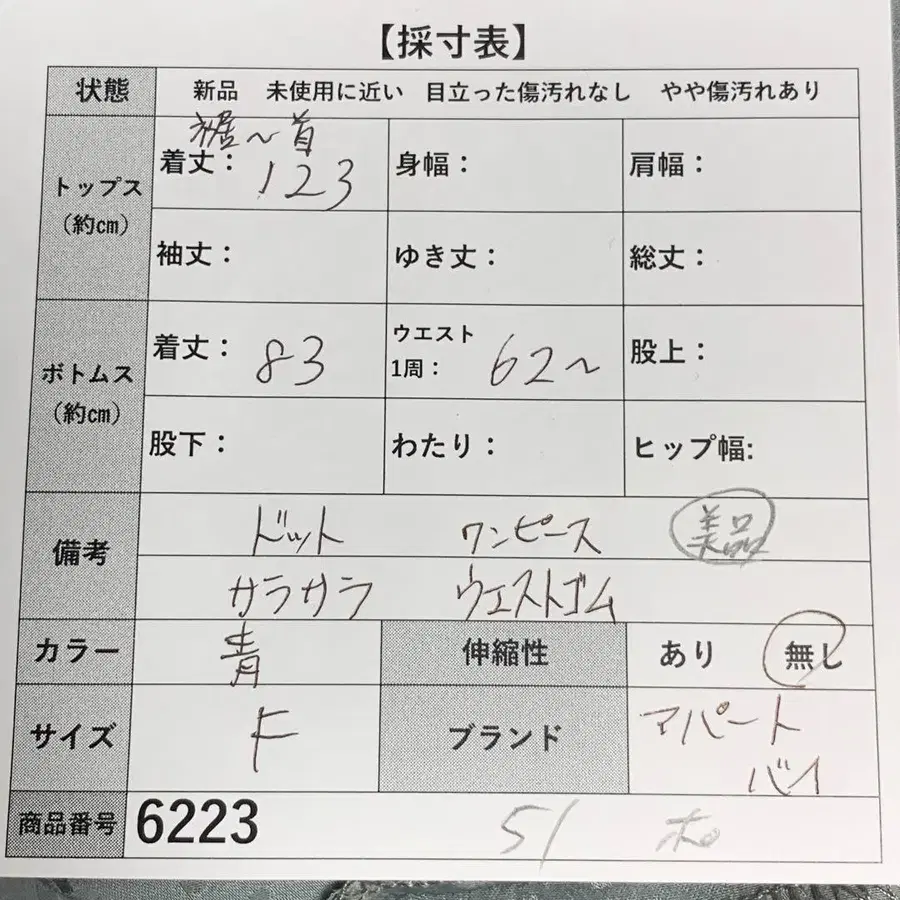 【採寸表】
状態 新品 未使用に近い 目立った傷汚れなし やや傷汚れあり
裾〜首
トップス（約㎝） 着丈： 123 身幅： 肩幅：
袖丈： ゆき丈： 総丈：
ボトムス（約㎝） 着丈： 83 ウエスト1周： 62〜 股上：
股下： わたり： ヒップ幅:
備考 ドット ワンピース 美品
サラサラ ウエストゴム
カラー 青 伸縮性 あり 無し
サイズ F ブランド アパート
バイ
商品番号 6223 51 ホ